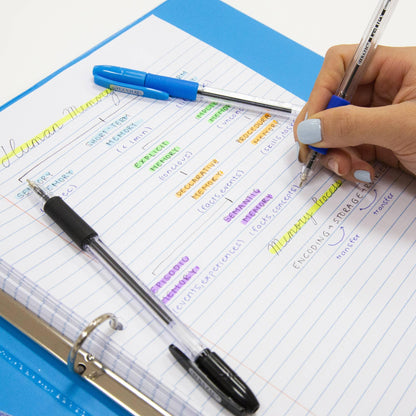 Human Memory
SENSORY
MEMORY
(<1 sec)
SHORT-TERM
MEMORY
(<1 min)
EXPLICIT
MEMORY
(conscious)
DECLARATIVE
MEMORY
(facts, events)
PROCEDURAL
MEMORY
(skills,
SEMANTIC
MEMORY
(facts, concepts)
EPISODIC
MEMORY
(events, experiences)
Memory Process
ENCODING → STORAGE
transfer
transfer